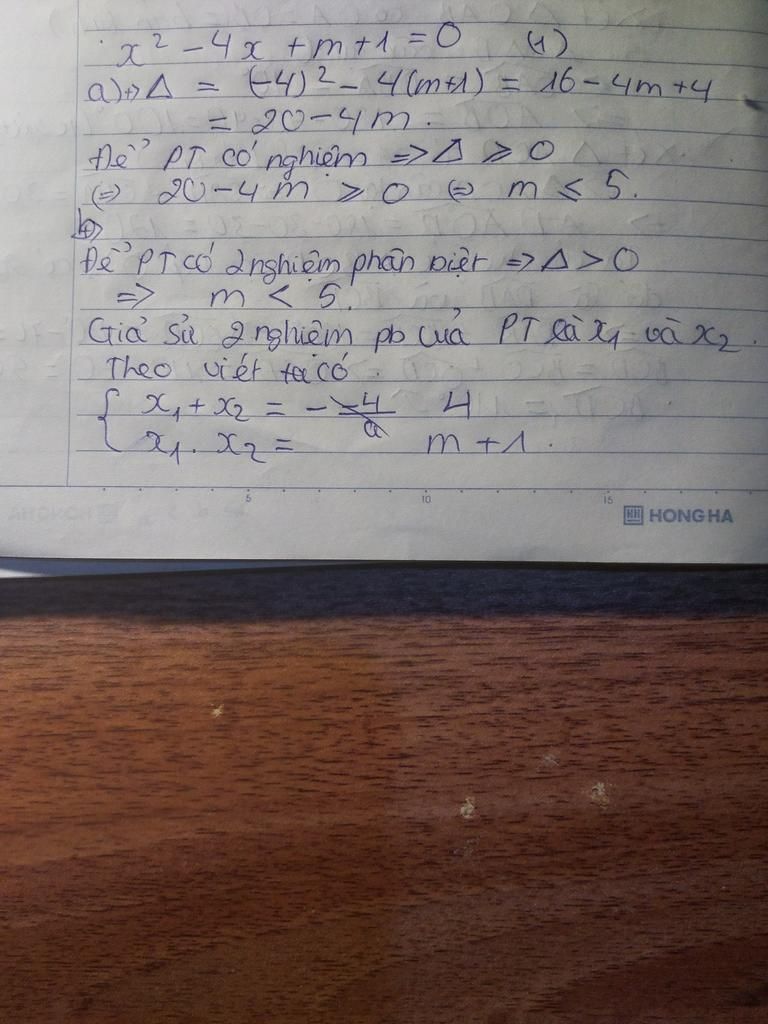 x² - 4x + m + 1 = 0 (1)
a) +) Δ = (-4)² - 4(m+1) = 16 - 4m + 4
= 20 - 4m.
Để PT có nghiệm => Δ ⩾ 0
(=) 20 - 4m ⩾ 0 (=) m ⩽ 5.
Để PT có 2 nghiệm phân biệt => Δ > 0
=> m < 5.
Giả sử 2 nghiệm pb của PT là x₁ và x₂.
Theo viét ta có
x₁ + x₂ = - 4
x₁ . x₂ = m + 1.
5 10 15
HONG HA